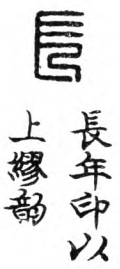 長
長年印以
上繆韻